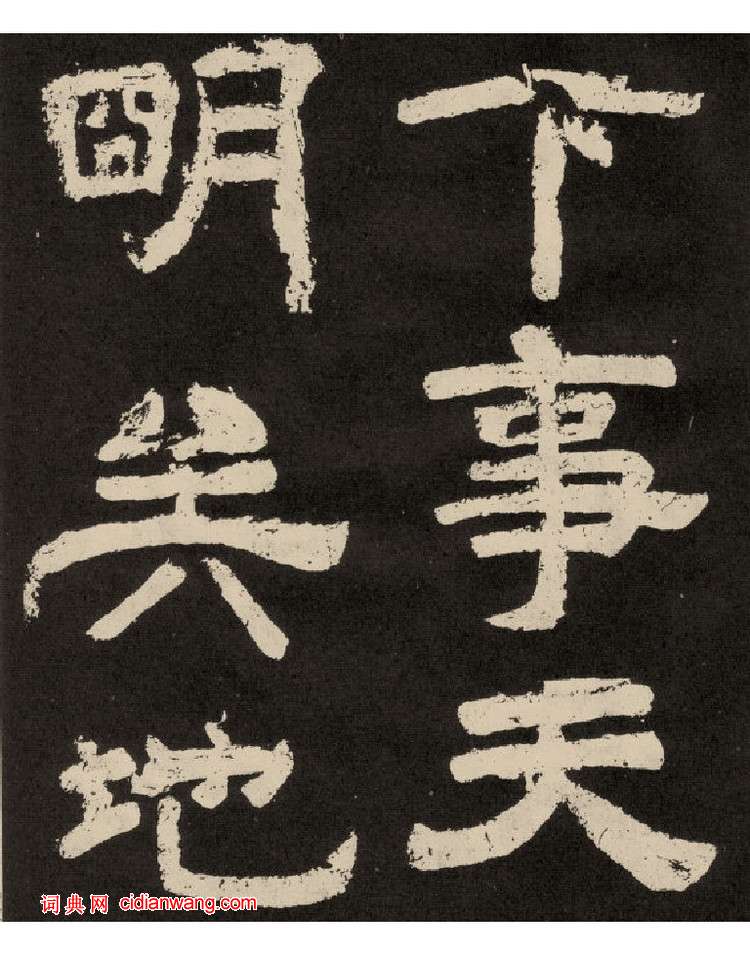 下事天
明地
词典网 cidianwang.com